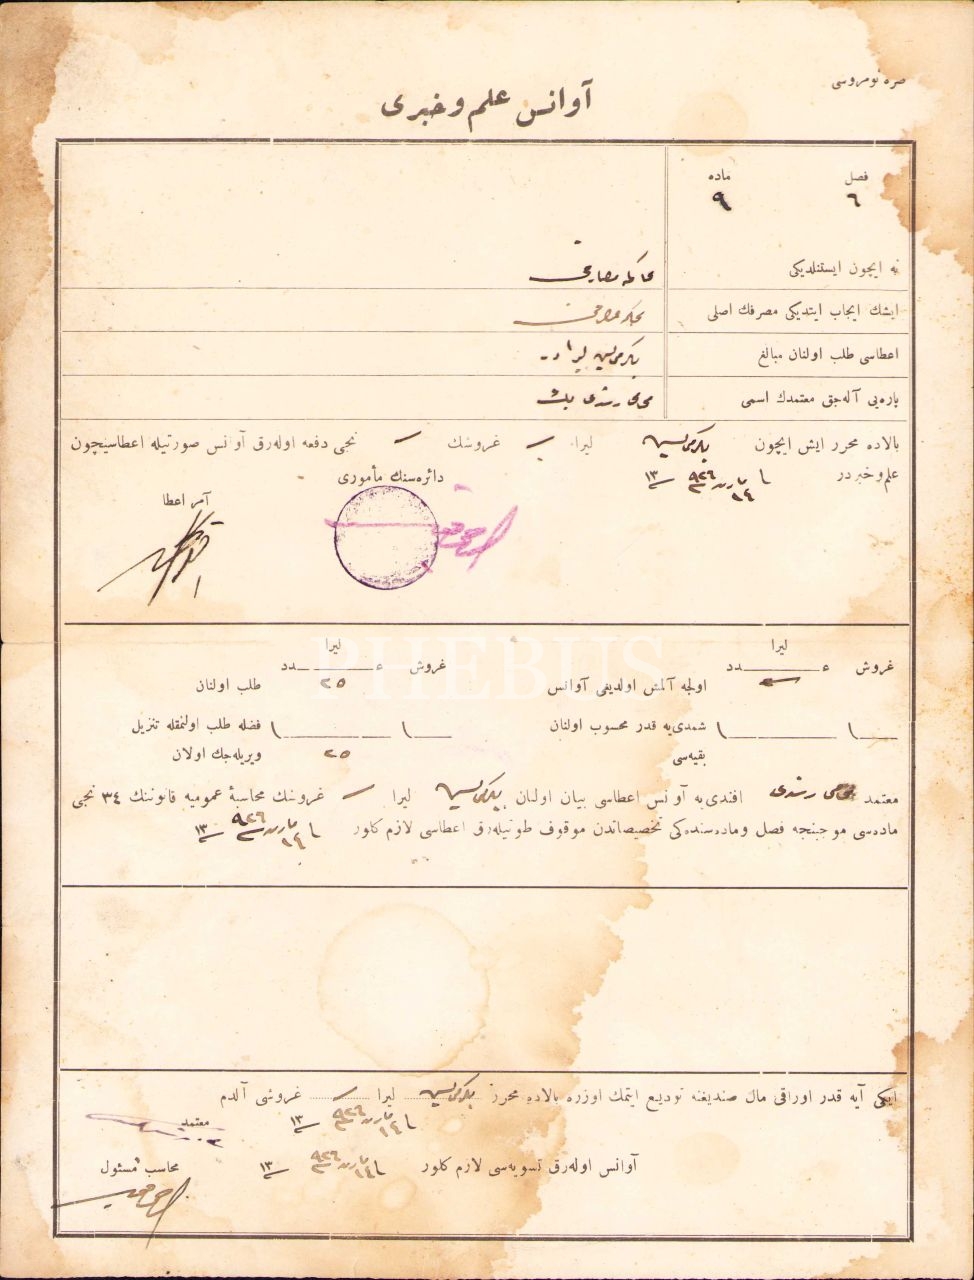 صره نومروسی
آوانس علم و خبری
فصل ماده
٦ ٩
نه ایچون ایستنلدیكی محاكمه مصارفی
ایشك ایجاب ایتدیكی مصرفك اصلی
اعطاسی طلب اولنان مبالغ یكرمی بش لیرادر
پاره‌یی آله‌جق معتمدك اسمی رشدی بك
بالاده محرر ایش ایچون یكرمی بش لیرا غروشك نجی دفعه اوله‌رق آوانس صورتیله اعطاسیچون
علم و خبر در ١٤ مارت ٩٢٦ ١٣
دائره‌سنك مأموری
آمر اعطا
لیرا لیرا
غروش عدد غروش عدد
اولجه آلمش اولدیغی آوانس ٢٥ طلب اولنان
شمدی‌یه قدر محسوب اولنان فضله طلب اولنمقله تنزیل
بقیه‌سی ٢٥ ویریله‌جك اولان
معتمد رشدی افندی‌یه آوانس اعطاسی بیان اولنان یكرمی بش لیرا غروشك محاسبهٔ عمومیه قانوننك ٣٤ نجی
ماده‌سی موجبنجه فصل و ماده‌سنده‌كی تخصیصاتدن موقوف طوتیله‌رق اعطاسی لازم كلور ١٤ مارت ٩٢٦ ١٣
PHEBUS
ایكی آیه قدر اوراقی مال صندیغنه تودیع ایتمك اوزره بالاده محرر یكرمی بش لیرا غروشی آلدم
١٤ مارت ٩٢٦ ١٣ معتمد
آوانس اوله‌رق تسویه‌سی لازم كلور ١٤ مارت ٩٢٦ ١٣
محاسب مسئول